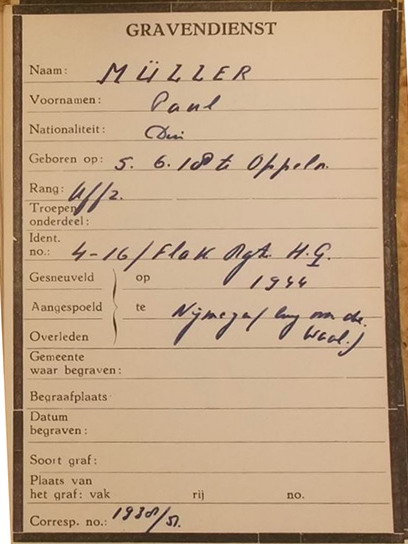 GRAVENDIENST
Naam: MÜLLER
Voornamen: Paul
Nationaliteit: Dui
Geboren op: 5. 6. 18 te Oppeln.
Rang: Uffz.
Troepen
onderdeel:
Ident.
no.: 4-16/Flak Rgt. H.G.
Gesneuveld op 1944
Aangespoeld te Nijmegen/brug om de
Overleden Waal.)
Gemeente
waar begraven:
Begraafplaats
Datum
begraven:
Soort graf:
Plaats van
het graf: vak rij no.
Corresp. no.: 1938/51.